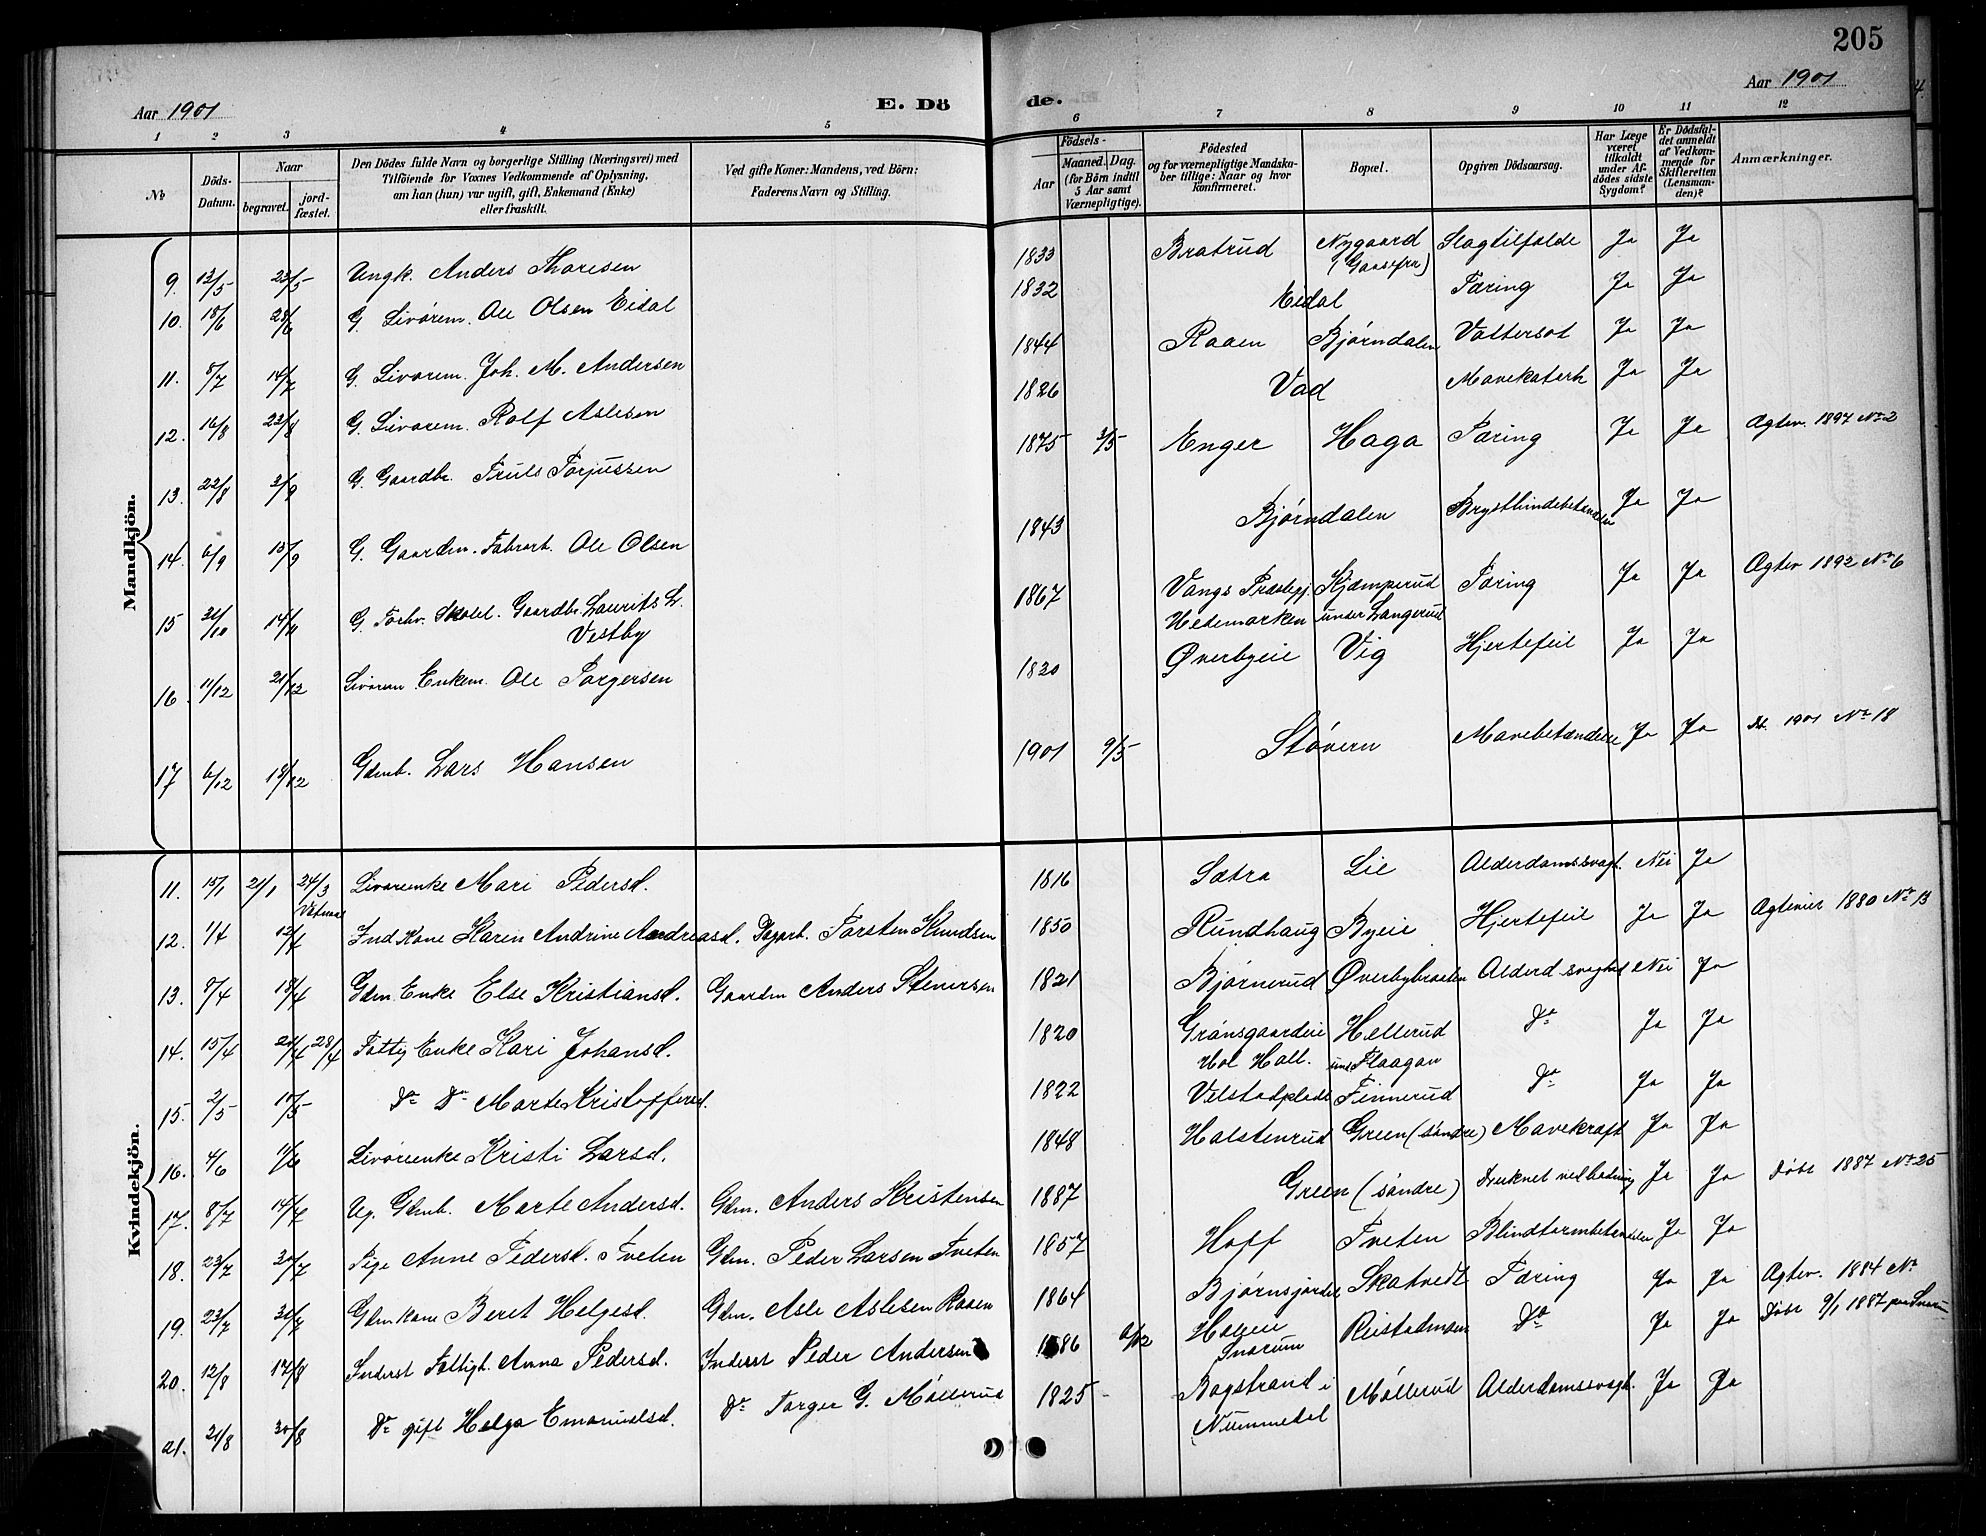 205
Aar 1901
E. Dö
de.
Aar 1901
1 2 3 4 5 6 7 8 9 10 11 12
No
Döds-Datum.
Naar
begravet.
jord-fæstet.
Den Dödes fulde Navn og borgerlige Stilling (Næringsvei) med
Tilföiende for Voxnes Vedkommende af Oplysning,
om han (hun) var ugift, gift, Enkemand (Enke)
eller fraskilt.
Ved gifte Koner: Mandens, ved Börn:
Faderens Navn og Stilling.
Födsels-
Aar
Maaned. Dag.
(for Börn indtil
5 Aar samt
Værnepligtige).
Födested
og for værnepligtige Mandska-
ber tillige: Naar og hvor
konfirmeret.
Bopæl.
Opgiven Dödsaarsag.
Har Læge
været
tilkaldt
under Af-
dödes sidste
Sygdom?
Er Dödsfal-
det anmeldt
af Vedkom-
mende for
Skifteretten
(Lensman-
den)?
Anmærkninger.
Mandkjön.
9. 12/5 23/5 Ungk. Anders Thoresen 1833 Bratrud Nygaard Slagtilfælde Ja Ja
(Gaasefra)
10. 18/6 28/6 G. Livørem. Ole Olsen Eidal 1832 Eidal Tæring Ja Ja
11. 8/7 14/7 G. Livørem. Joh. M. Andersen 1844 Raaen Bjørndalen Vattersot Ja Ja
12. 16/8 22/8 G. Livørem. Rolf Aslesen 1826 Vad Mavekatarh Ja Ja
13. 22/8 2/9 G. Gaardbr. Truls Torjussen 1875 3/5 Enger Haga Tæring Ja Ja Ægtev. 1897 No 2
14. 6/9 15/9 G. Gaardm. Fabrarb. Ole Olsen 1843 Bjørndalen Ja Ja
15 31/10 14/11 G. Forhv. Skolel. Gaardbr. Laurits L. 1867 Vangs Præstegj. Kjæmperud Tæring Ja Ja Ægtev 1892 No 6
Vestby Hedemarken under Langerud
16 11/12 21/12 Livørem Enkem. Ole Torgersen 1820 Øverbyeie Vig Hjertefeil Ja Ja
17 6/12 19/12 Gdmb. Lars Hansen 1901 9/5 Støvern Mavebetændelse Ja Ja Db. 1901 No 18
Kvindekjön.
11. 15/1 21/1 24/3 Livøreenke Mari Pedersd. 1816 Sætra Lie Alderdomssvagh. Nei Ja
12. 1/4 12/4 Ind Kone Karen Andrine Andreasd. Dagarb. Torsten Knudsen 1850 Rundhaug Byeie Hjertefeil Ja Ja Ægteviet 1880 No 13
13. 8/4 18/4 Gdm. Enke Else Kristiansd. Gaardm Anders Stenersen 1821 Bjørnerud Øverbybraaten Alderd.svaghed Nei Ja
14. 15/4 21/4 28/4 Fattig Enke Kari Johansd. 1820 Grønsgaardeie Hellerud Do Ja Ja
Hol Hall. und Flaagan
15. 2/5 10/5 Do Do Marte Kristoffersd. 1822 Velstadplads Finnerud Do Ja Ja
16. 4/6 11/6 Livøreenke Kristi Larsd. 1848 Halstenrud Green (søndre) Mavekræft Ja Ja
17. 8/7 14/7 Ug. Gdmb. Marte Andersd. Gdm. Anders Kristensen 1887 Green (søndre) Druknet ved badning Ja Ja Døbt 1887 No 25
18. 23/7 30/7 Pige Anne Pedersd. Tveten Gdm. Peder Larsen Tveten 1857 Hoff Tveten Ja Ja
19. 23/7 31/7 Gdm kone Beret Helgesd. Gdm. Asle Aslesen Raaen 1864 Skatvedt Tæring Ja Ja Ægtev. 1884 No
20. 12/8 17/8 Inderst Fattigl. Anna Pedersd. Inderst Peder Andersen 1886 6/12 Ja Ja Døbt 9/1 1887 paa Snarum
Snarum
21. 21/8 30/8 Do gift Helga Emanuelsd. Do Torger G. Møllerud 1825 Bagstrand i Møllerud Alderdomssvagh. Ja Ja
Nummedal